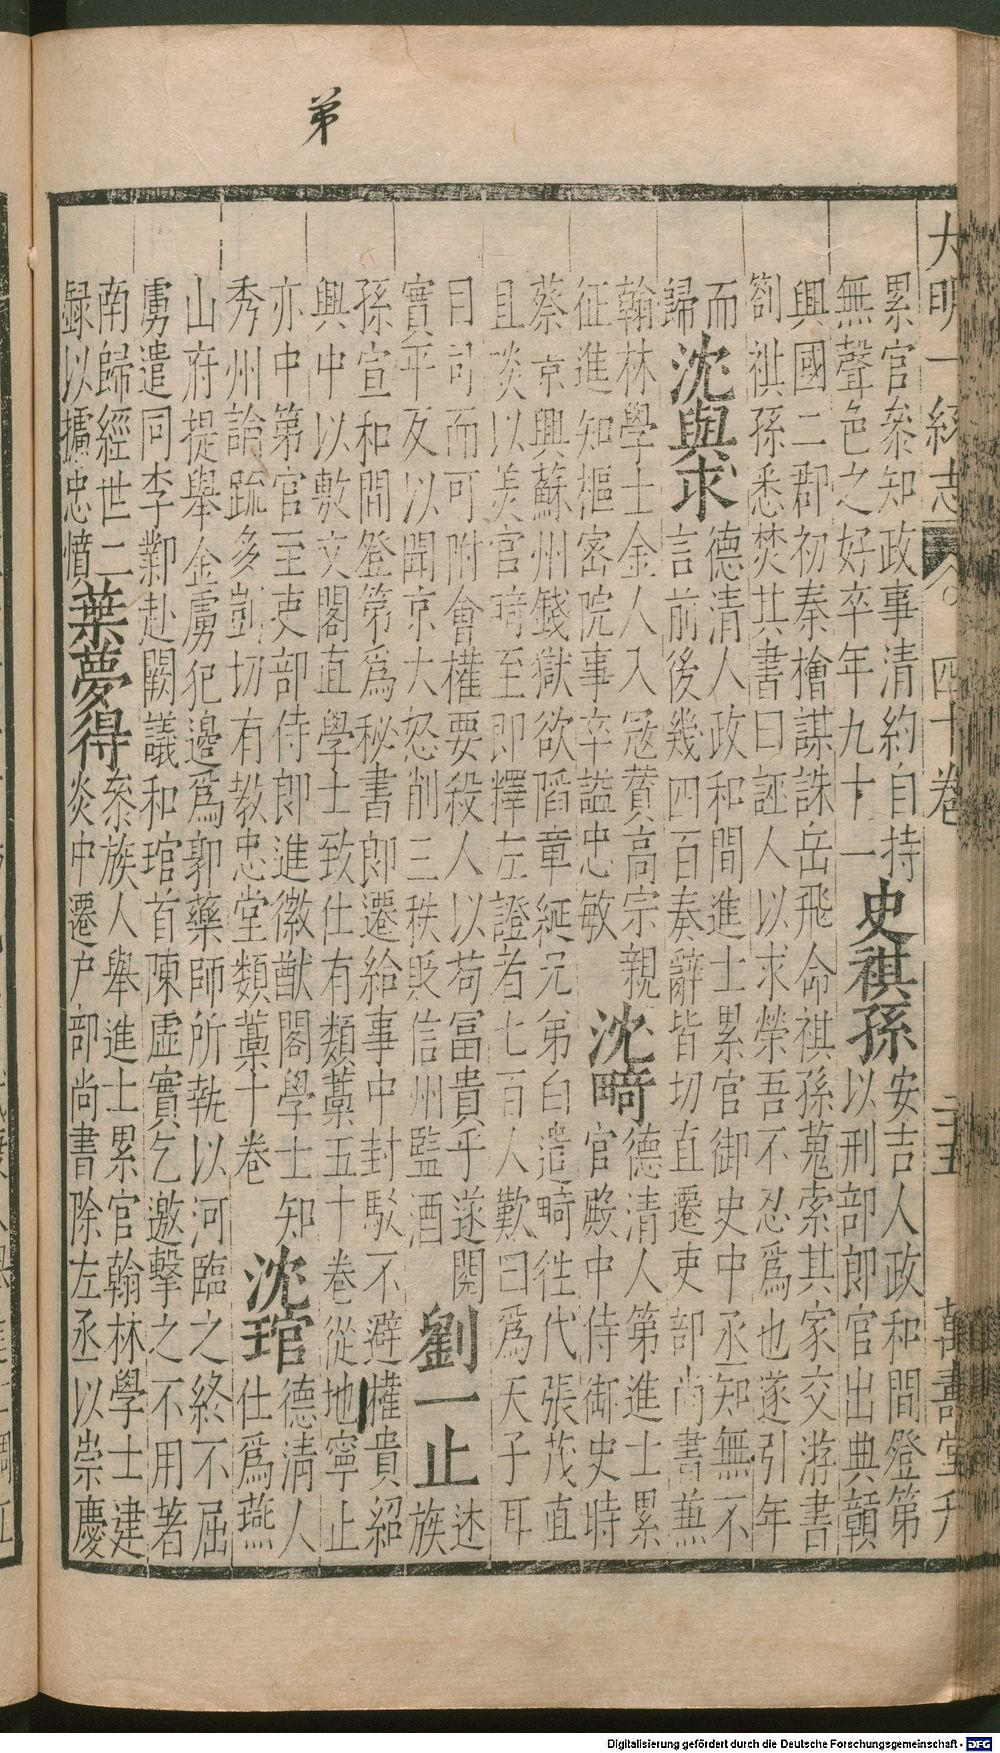 弟
大明一統志 四十卷 二五 萬壽堂刊
累官叅知政事清約自持
無聲色之好卒年九十一
史祺孫
安吉人政和間登第
以刑部郎官出典贛
興國二郡初秦檜謀誅岳飛命祺孫蒐索其家交游書
劄祺孫悉焚其書曰誣人以求榮吾不忍爲也遂引年
而
歸
沈與求
德清人政和間進士累官御史中丞知無不
言前後幾四百奏辭皆切直遷吏部尚書蕪
翰林學士金人入冦賛高宗親
征進知樞宻院事卒謚忠敏
沈畸
德清人第進士累
官殿中侍御史時
蔡京興蘇州錢獄欲䧟章綖兄弟白造畸往代張茂直
且啖以羙官畸至即釋左證者七百人歎曰爲天子耳
目司而可附會權要殺人以苟冨貴乎遂閱
實平反以聞京大怒削三秩貶信州監酒
劉一止
述
族
孫宣和間登第爲秘書郎遷給事中封駁不避權貴紹
興中以敷文閣直學士致仕有類藁五十卷從地寧止
亦中第官至吏部侍郎進徽猷閣學士知
秀州論䟽多剴切有教忠堂類藁十卷
沈琯
德清人
仕爲燕
山府提舉金虜犯邊爲郭藥師所執以河臨之終不屈
虜遣同李鄴赴闕議和琯首陳虛實乞邀擊之不用著
南歸經世二
録以攄忠憤
葉夢得
叅族人舉進士累官翰林學士建
炎中遷户部尚書除左丞以崇慶
Digitalisierung gefördert durch die Deutsche Forschungsgemeinschaft - DFG